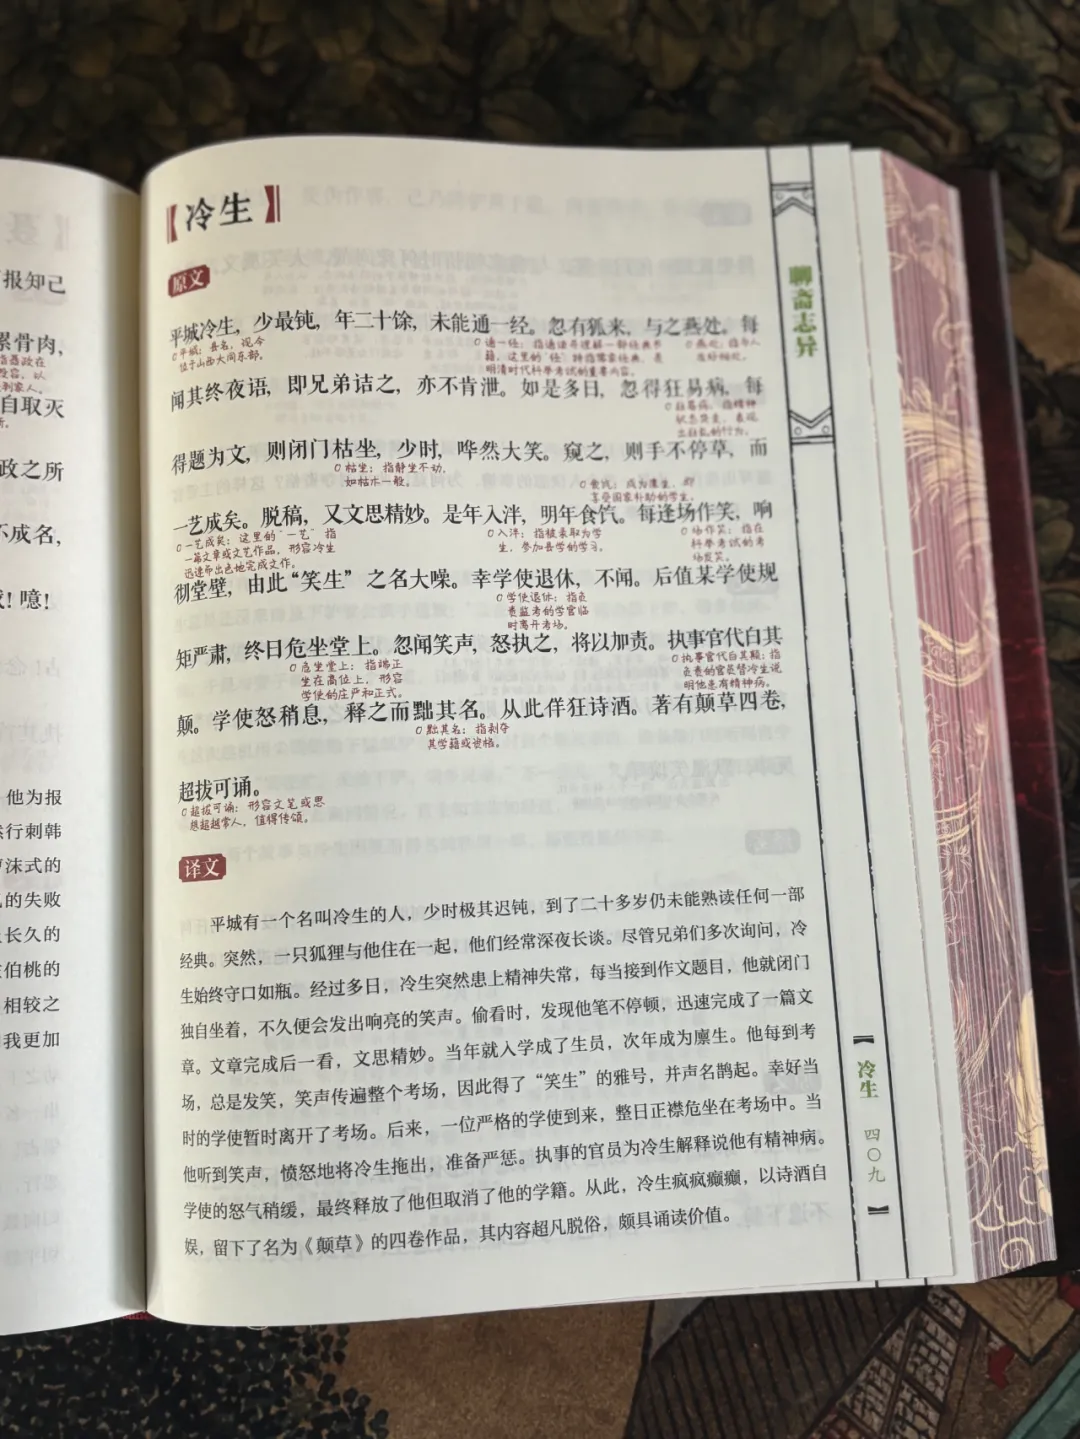 报知己
累骨肉，
自取灭
政之所
不成名，
噫！
他为报
行刺韩
沫式的
的失败
长久的
伯桃的
相较之
我更加
【冷生】
原文
平城冷生，少最钝，年二十馀，未能通一经。忽有狐来，与之燕处。每
平城：县名，现今
位于山西大同东部。
通一经：指通读并理解一部经典书
籍，这里的“经”特指儒家经典，是
明清时代科举考试的重要内容。
燕处：指与人
友好相处。
闻其终夜语，即兄弟诘之，亦不肯泄。如是多日，忽得狂易病，每
狂易病：指精神
状态异变，表现
出狂乱的行为。
得题为文，则闭门枯坐，少时，哗然大笑。窥之，则手不停草，而
枯坐：指静坐不动，
如枯木一般。
食饩：成为廪生，即
享受国家补助的学生。
一艺成矣。脱稿，又文思精妙。是年入泮，明年食饩。每逢场作笑，响
一艺成矣：这里的“一艺”指
一篇文章或文艺作品，形容冷生
迅速而出色地完成文作。
入泮：指被录取为学
生，参加县学的学习。
场作笑：指在
科举考试的考
场发笑。
彻堂壁，由此“笑生”之名大噪。幸学使退休，不闻。后值某学使规
学使退休：指负
责监考的学官临
时离开考场。
矩严肃，终日危坐堂上。忽闻笑声，怒执之，将以加责。执事官代白其
危坐堂上：指端正
坐在高位上，形容
学使的庄严和正式。
执事官代白其颠：指
负责的官员替冷生说
明他患有精神病。
颠。学使怒稍息，释之而黜其名。从此佯狂诗酒。著有颠草四卷，
黜其名：指剥夺
其学籍或资格。
超拔可诵。
超拔可诵：形容文笔或思
想超越常人，值得传颂。
译文
平城有一个名叫冷生的人，少时极其迟钝，到了二十多岁仍未能熟读任何一部
经典。突然，一只狐狸与他住在一起，他们经常深夜长谈。尽管兄弟们多次询问，冷
生始终守口如瓶。经过多日，冷生突然患上精神失常，每当接到作文题目，他就闭门
独自坐着，不久便会发出响亮的笑声。偷看时，发现他笔不停顿，迅速完成了一篇文
章。文章完成后一看，文思精妙。当年就入学成了生员，次年成为廪生。他每到考
场，总是发笑，笑声传遍整个考场，因此得了“笑生”的雅号，并声名鹊起。幸好当
时的学使暂时离开了考场。后来，一位严格的学使到来，整日正襟危坐在考场中。当
他听到笑声，愤怒地将冷生拖出，准备严惩。执事的官员为冷生解释说他有精神病。
学使的怒气稍缓，最终释放了他但取消了他的学籍。从此，冷生疯疯癫癫，以诗酒自
娱，留下了名为《颠草》的四卷作品，其内容超凡脱俗，颇具诵读价值。
聊斋志异
【冷生 四〇九】